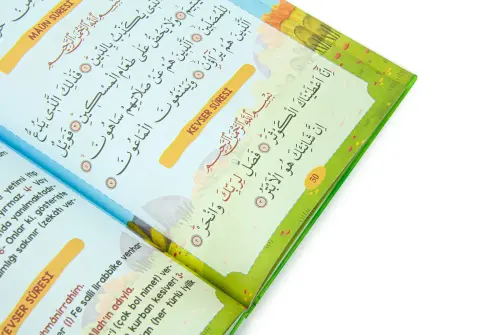 MAÛN SÛRESİ
بِسْمِ اللّٰهِ الرَّحْمٰنِ الرَّحِيمِ
يُكَذِّبُ بِالدِّينِ ۞ فَذٰلِكَ الَّذِى يَدُعُّ
وَلَا يَحُضُّ عَلٰى طَعَامِ الْمِسْكِينِ ۞ فَوَيْلٌ
لِلْمُصَلِّينَ ۞ اَلَّذِينَ هُمْ عَنْ صَلَاتِهِمْ سَاهُونَ ۞
اَلَّذِينَ هُمْ يُرَٓاؤُنَ ۞ وَيَمْنَعُونَ الْمَاعُونَ ۞
KEVSER SÛRESİ
بِسْمِ اللّٰهِ الرَّحْمٰنِ الرَّحِيمِ
اِنَّٓا اَعْطَيْنَاكَ الْكَوْثَرَ ۞ فَصَلِّ لِرَبِّكَ وَانْحَرْ ۞
اِنَّ شَانِئَكَ هُوَ الْاَبْتَرُ ۞
50
yetimi itip
4- Vay
da yanılmaktadır-
6- Onlar ki, gösterişte
sakınır (zekâtı ver-
KEVSER SÛRESİ
(1) Fe salli lirabbike venhar
Allah'ın adıyla.
(çok bol nimet) ver-
kurban kesiver!
(her türlü iyilik